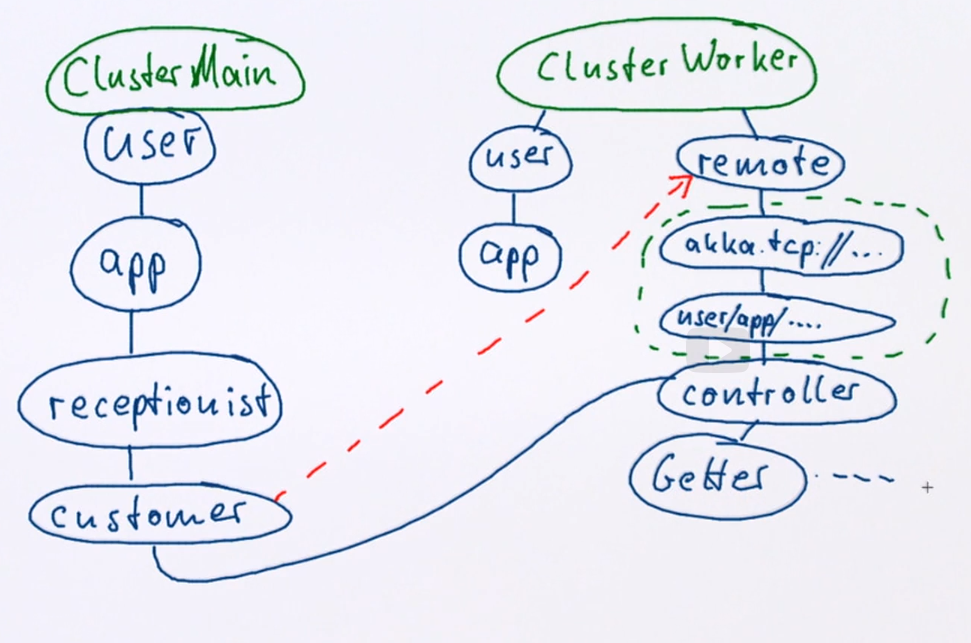 Cluster Main
user
app
receptionist
customer
Cluster Worker
user
app
remote
akka.tcp://...
user/app/....
controller
Getter